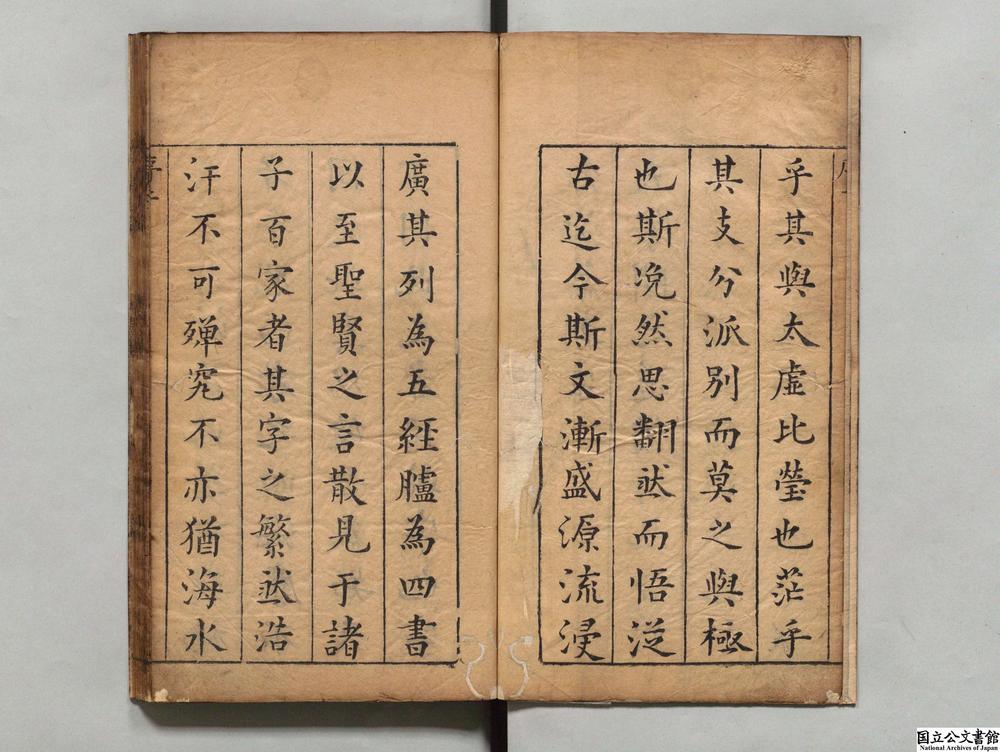 乎其與太虛比瑩也茫乎
其支分派別而莫之與極
也斯怳然思翻然而悟從
古迄今斯文漸盛源流浸
廣其列為五經臚為四書
以至聖賢之言散見于諸
子百家者其字之繁然浩
汗不可殫究不亦猶海水
国立公文書館
National Archives of Japan